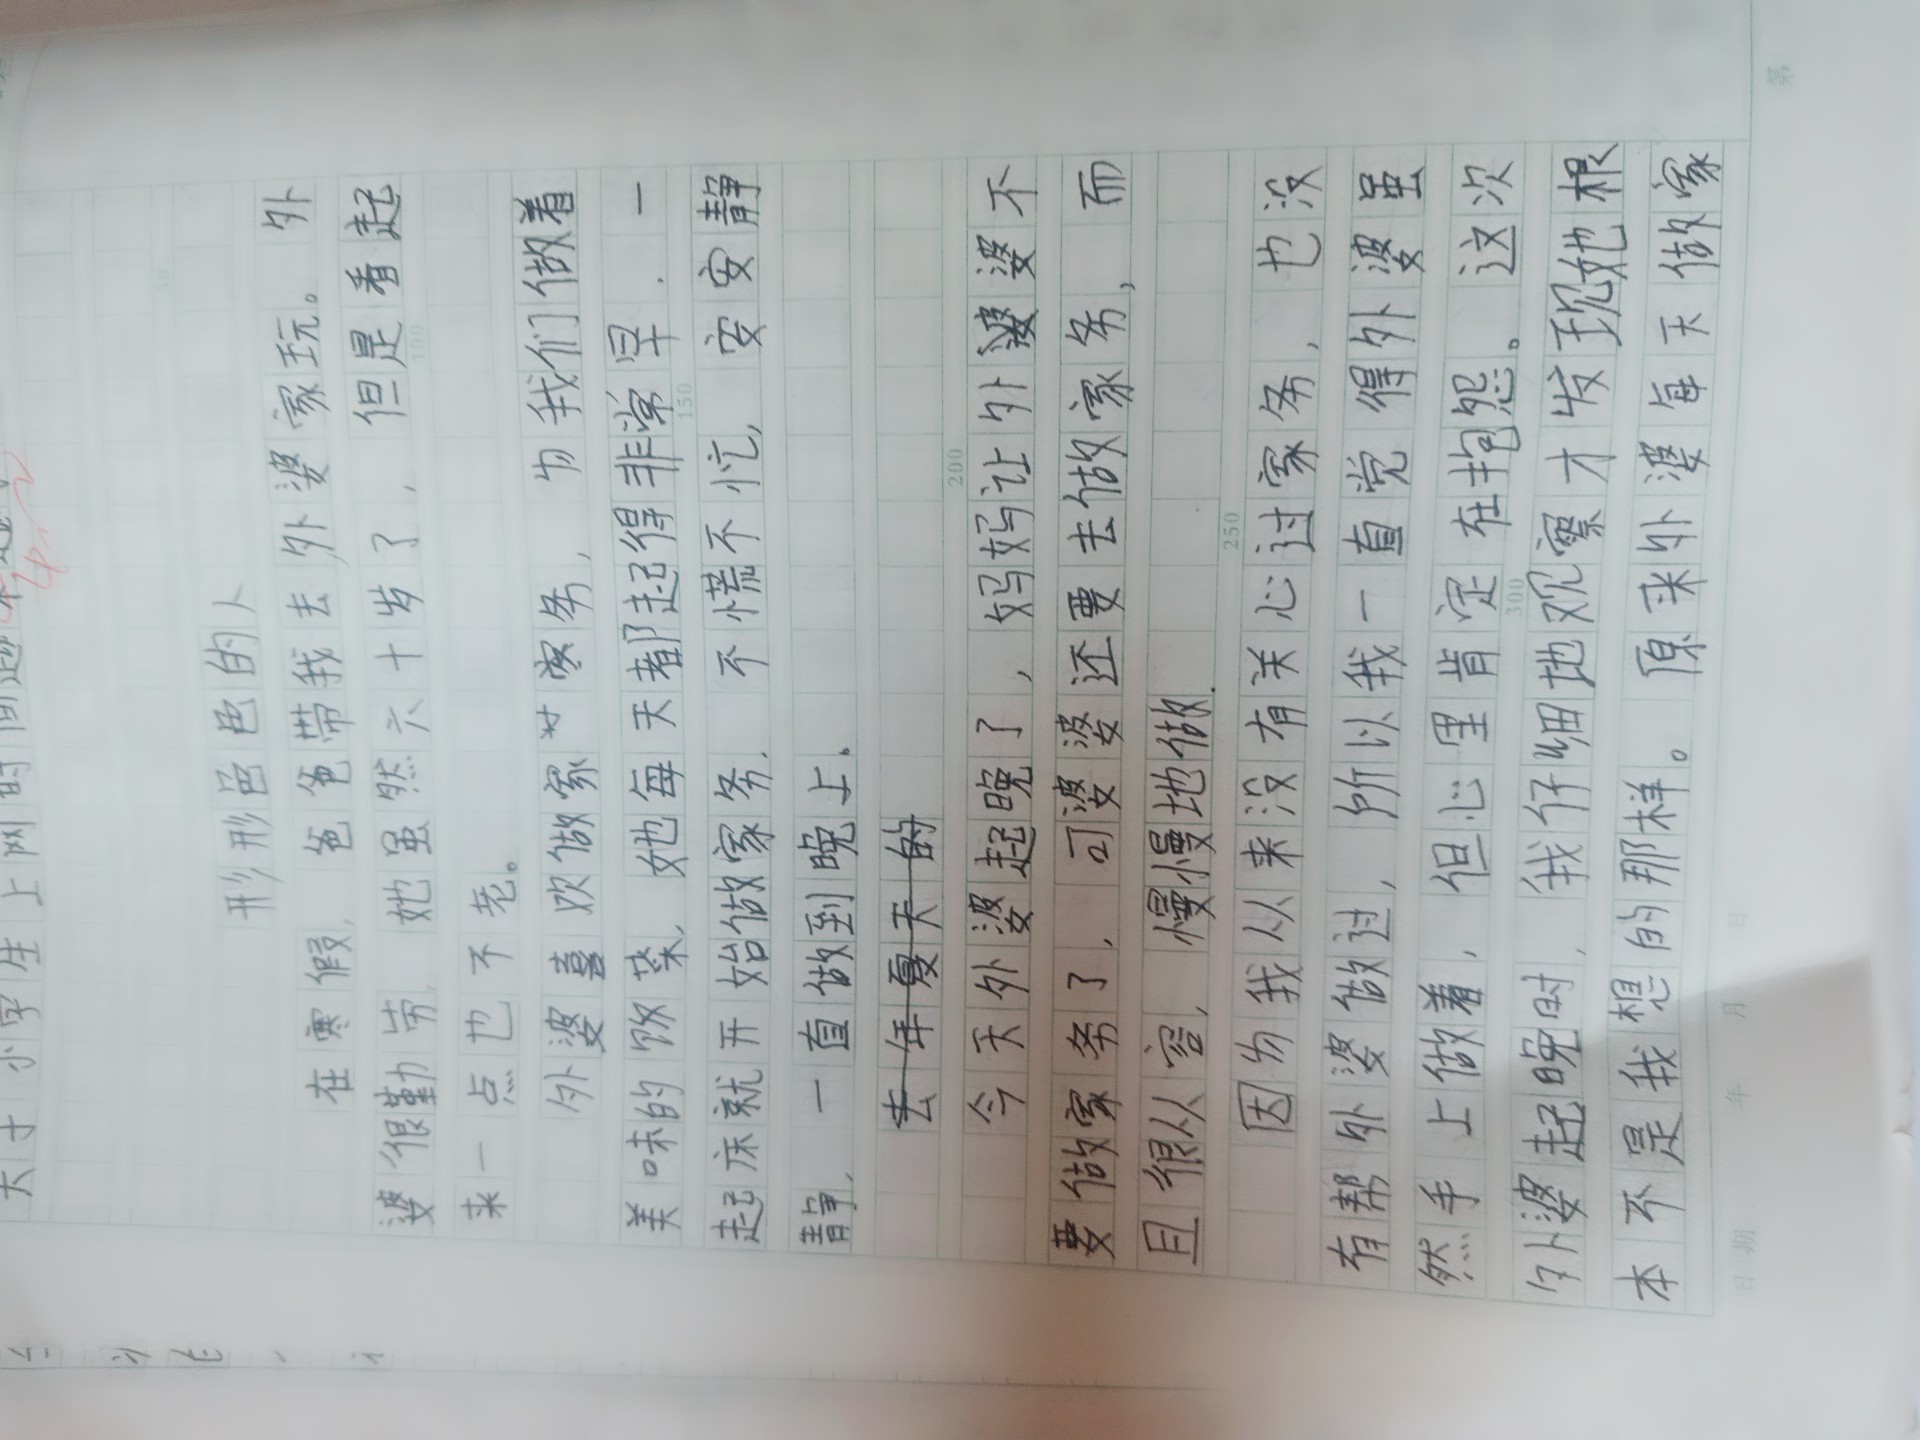 大于小学生上网时间
形形色色的人
在寒假,爸爸带我去外婆家玩。外
婆很勤劳,她虽然六十岁了,但是看起
来一点也不老。
外婆喜欢做家务,为我们做着
美味的饭菜,她每天都起得非常早.一
起床就开始做家务.不慌不忙,安安静
静,一直做到晚上。
去年夏天的
今天外婆起晚了,妈妈让外婆婆不
要做家务了,可婆婆还要去做家务,而
且很从容,慢慢地做.
因为我从来没有关心过家务,也没
有帮外婆做过,所以我一直觉得外婆虽
然手上做着,但心里肯定在抱怨。这次
外婆起晚时,我仔细地观察才发现她根
本不是我想的那样。原来外婆每天做家
100
150
200
250
300
日期 年 月 日
第